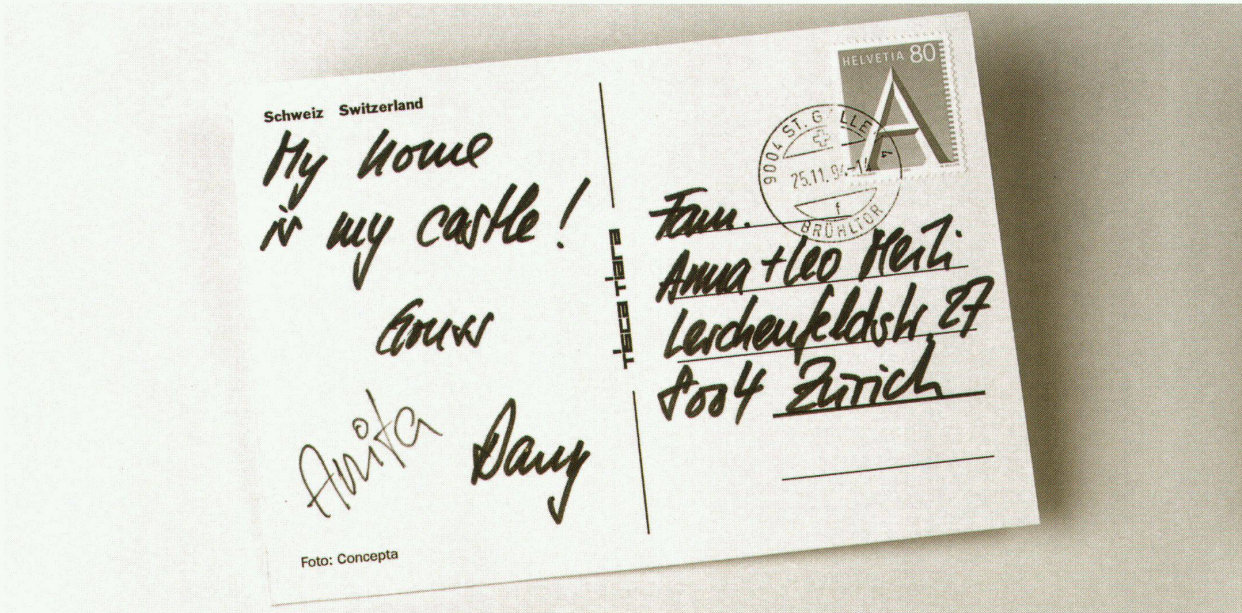 Schweiz Switzerland
My home
is my castle!
Gruss
Anita Dany
Foto: Concepta
Tisca Tiara
HELVETIA 80
A
9004 ST. GALLEN
25.11.94-14
f
BRÜHLTOR
Fam.
Anna + Leo
Lerchenfeldstr. 27
8004 Zürich